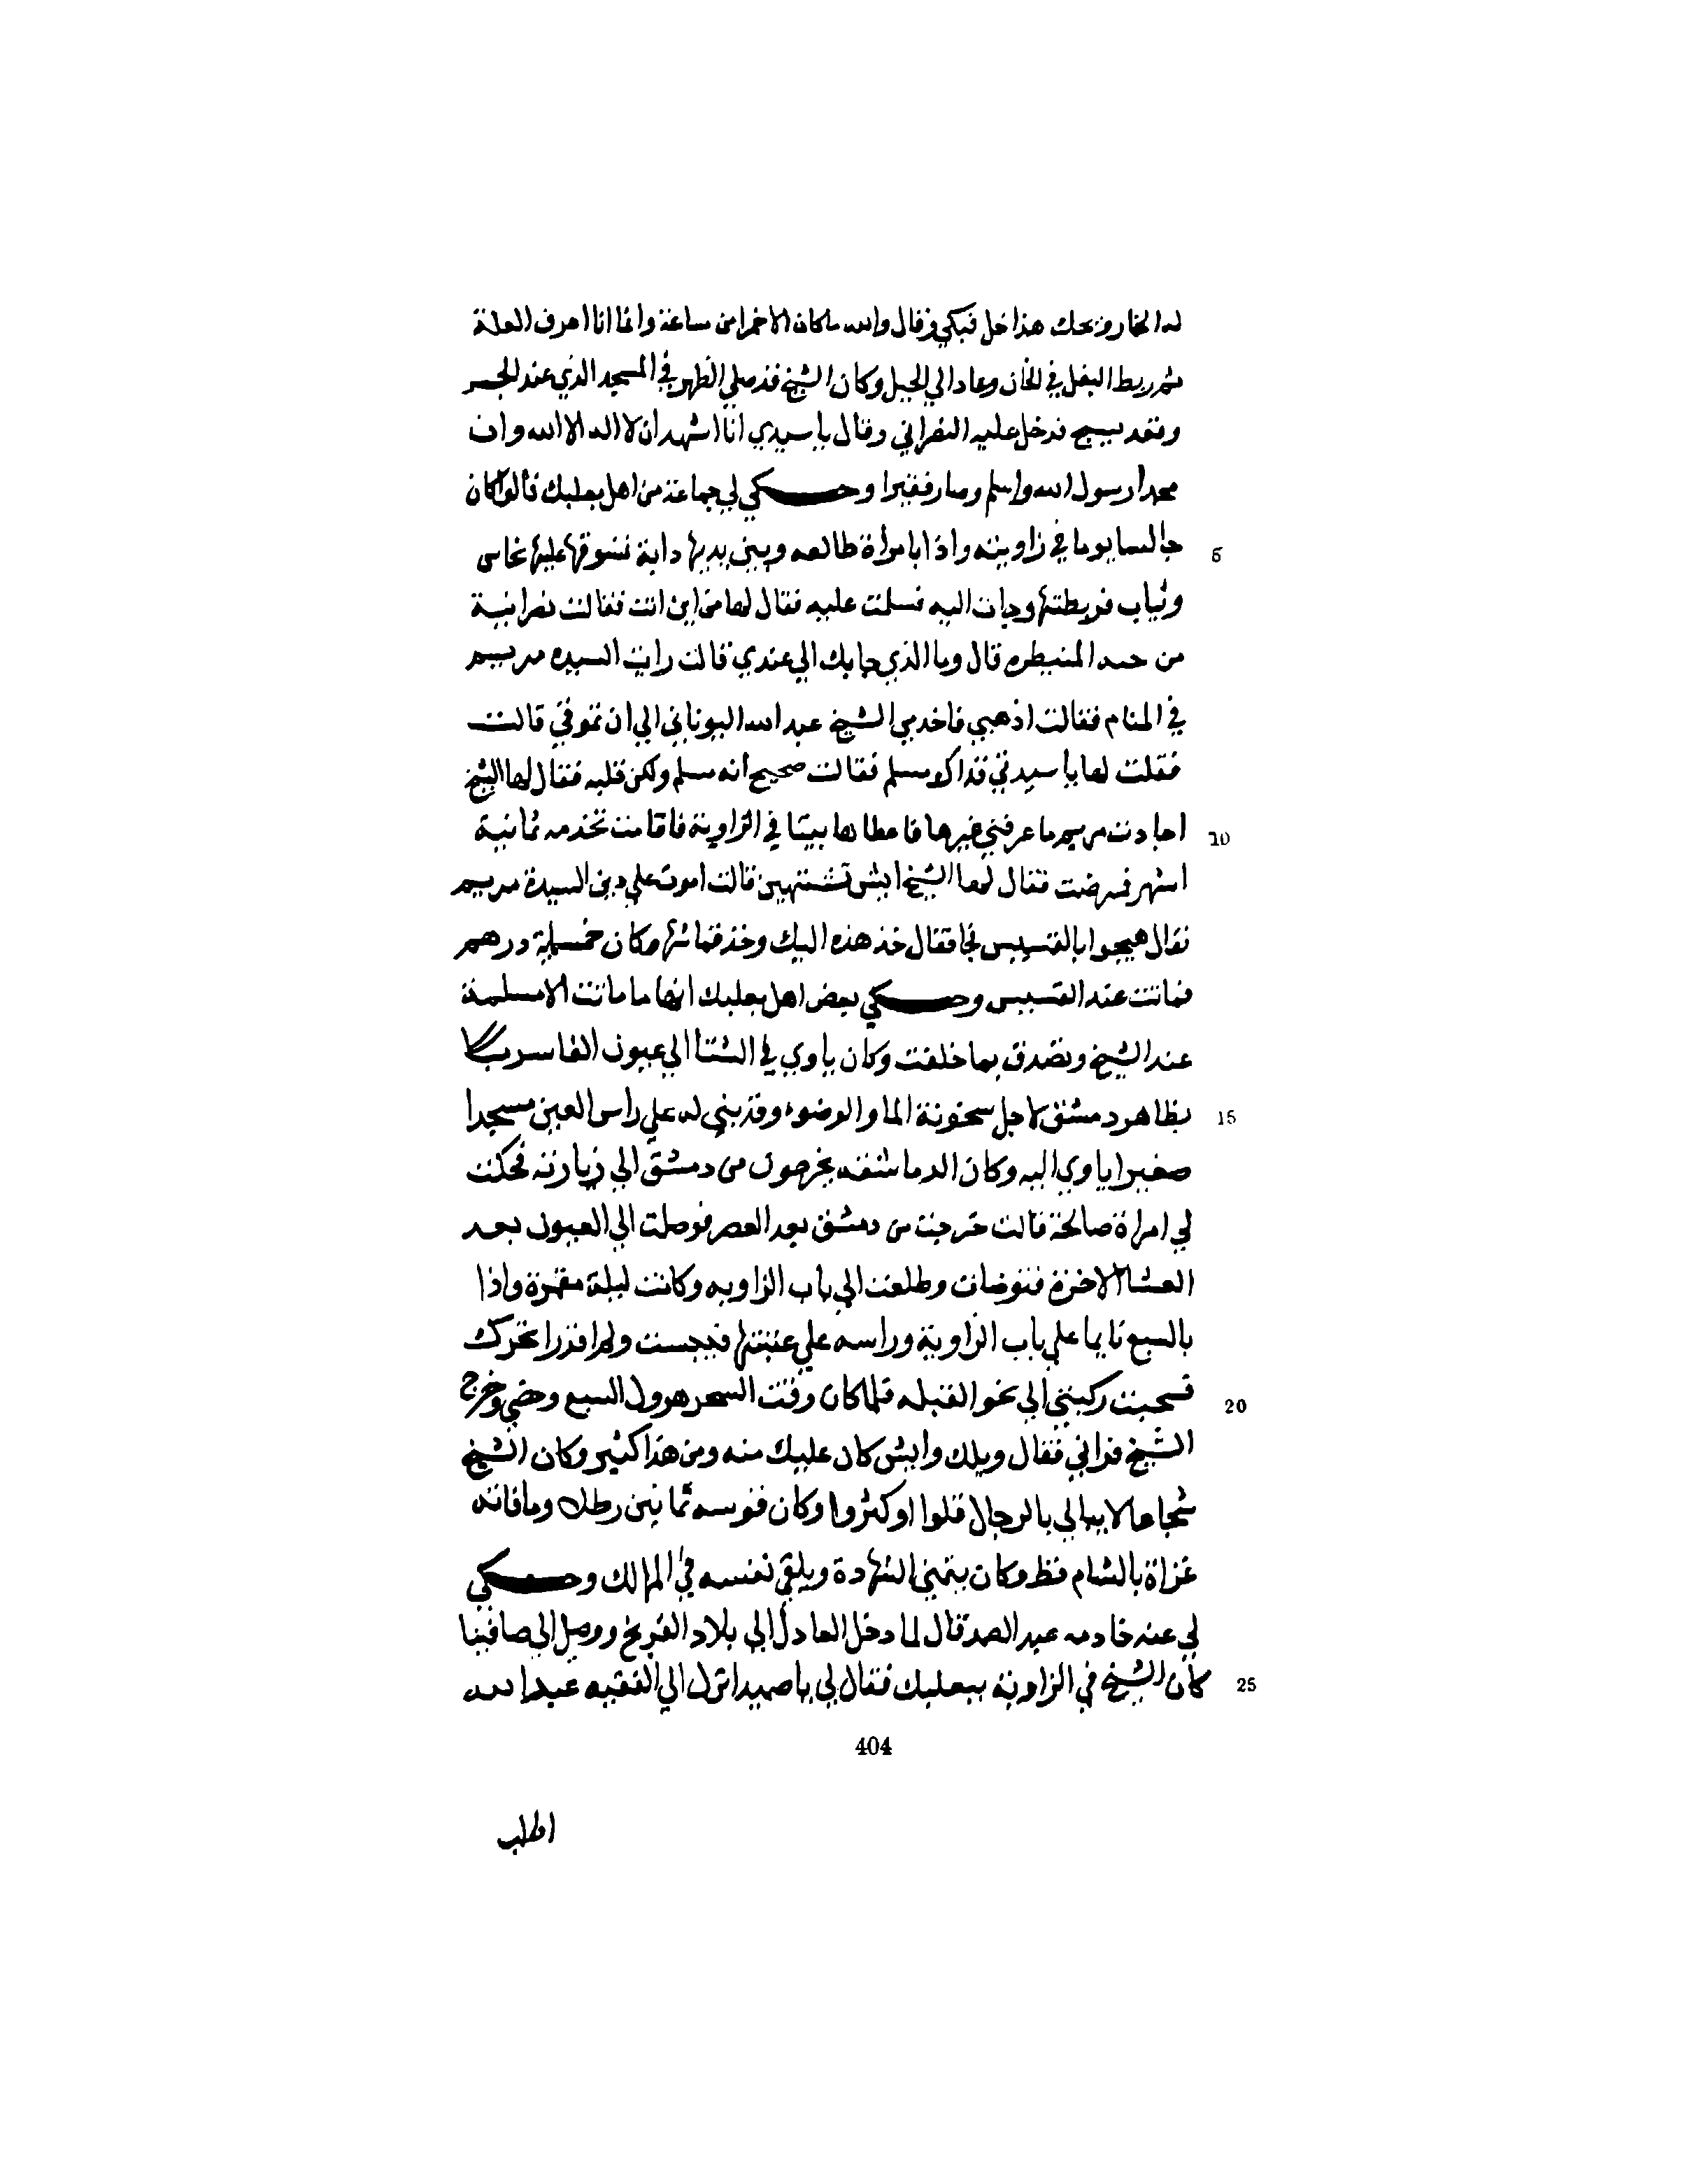 له الخمار ويحك هذا خل فبكي وقال والله ماكان الا خمرا من ساعة وانما انا اعرف العلة
ثم ربط البغل في الخان وعاد الي الجبل وكان الشيخ قد صلي الظهر في المسجد الذي عند الجسر
وقعد يسبح فدخل عليه النصراني وقال يا سيدي انا اشهد ان لا اله الا الله وان
محمدا رسول الله واسلم وصار فقيرا وحكي لي جماعة من اهل بعلبك قالوا كان
جالسا يوما في زاويته واذا بامراة طالعه وبين يديها دابة تسوقها عليها نحاس
وثياب فربطتها وجات اليه فسلمت عليه فقال لها من اين انت فقالت نصرانية
من المنيطره قال وما الذي جا بك الي عندي قالت رايت السيده مريم
في المنام فقالت اذهبي فاخدمي الشيخ عبد الله اليوناني الي ان تموتي قالت
فقلت لها يا سيدتي فذاك مسلم فقالت صحيح انه مسلم ولكن قلبه فقال لها الشيخ
اجادت مريم ما عرفني غيرها فاعطاها بيتا في الزاوية فاقامت تخدمه ثمانية
اشهر فمرضت فقال لها الشيخ ايش تشتهين قالت اموت علي دين السيدة مريم
فقال هيجوا بالقسيس فجا فقال خذ هذه اليك وخذ قماشها وكان خمسماية درهم
فماتت عند القسيس وحكي بعض اهل بعلبك انها ما ماتت الا مسلمة
عند الشيخ وتصدق بما خلفت وكان ياوي في الشتا الي عيون الفاسريا
بظاهر دمشق لاجل سخونة الما والوضوء وقد بني له علي راس العين مسجدا
صغيرا ياوي اليه وكان الدماشقه يخرجون من دمشق الي زيارته فحكت
لي امراة صالحة قالت خرجت من دمشق بعد العصر فوصلت الي العيون بعد
العشا الاخرة فتوضات وطلعت الي باب الزاويه وكانت ليلة مقمرة واذا
بالسبع نايما علي باب الزاوية وراسه علي عتبتها فيبست ولم اقدر اتحرك
فسحبت ركبتي الي نحو القبله فلما كان وقت السحر هرول السبع ومضي وخرج
الشيخ فراني فقال ويلك وايش كان عليك منه ومن هذا كثير وكان الشيخ
شجاعا لا يبالي بالرجال قلوا او كثروا وكان قوسه ثمانين رطلا وما فاتته
غزاة بالشام قط وكان يتمني الشهادة ويلقي نفسه في المهالك وحكي
لي عنه خادمه عبد الصمد قال لما دخل العادل الي بلاد الفرنج ووصل الي صافيتا
كان الشيخ في الزاوية ببعلبك فقال لي يا صميد انزل الي الفقيه عبد الله
5
10
15
20
25
404
اطلب